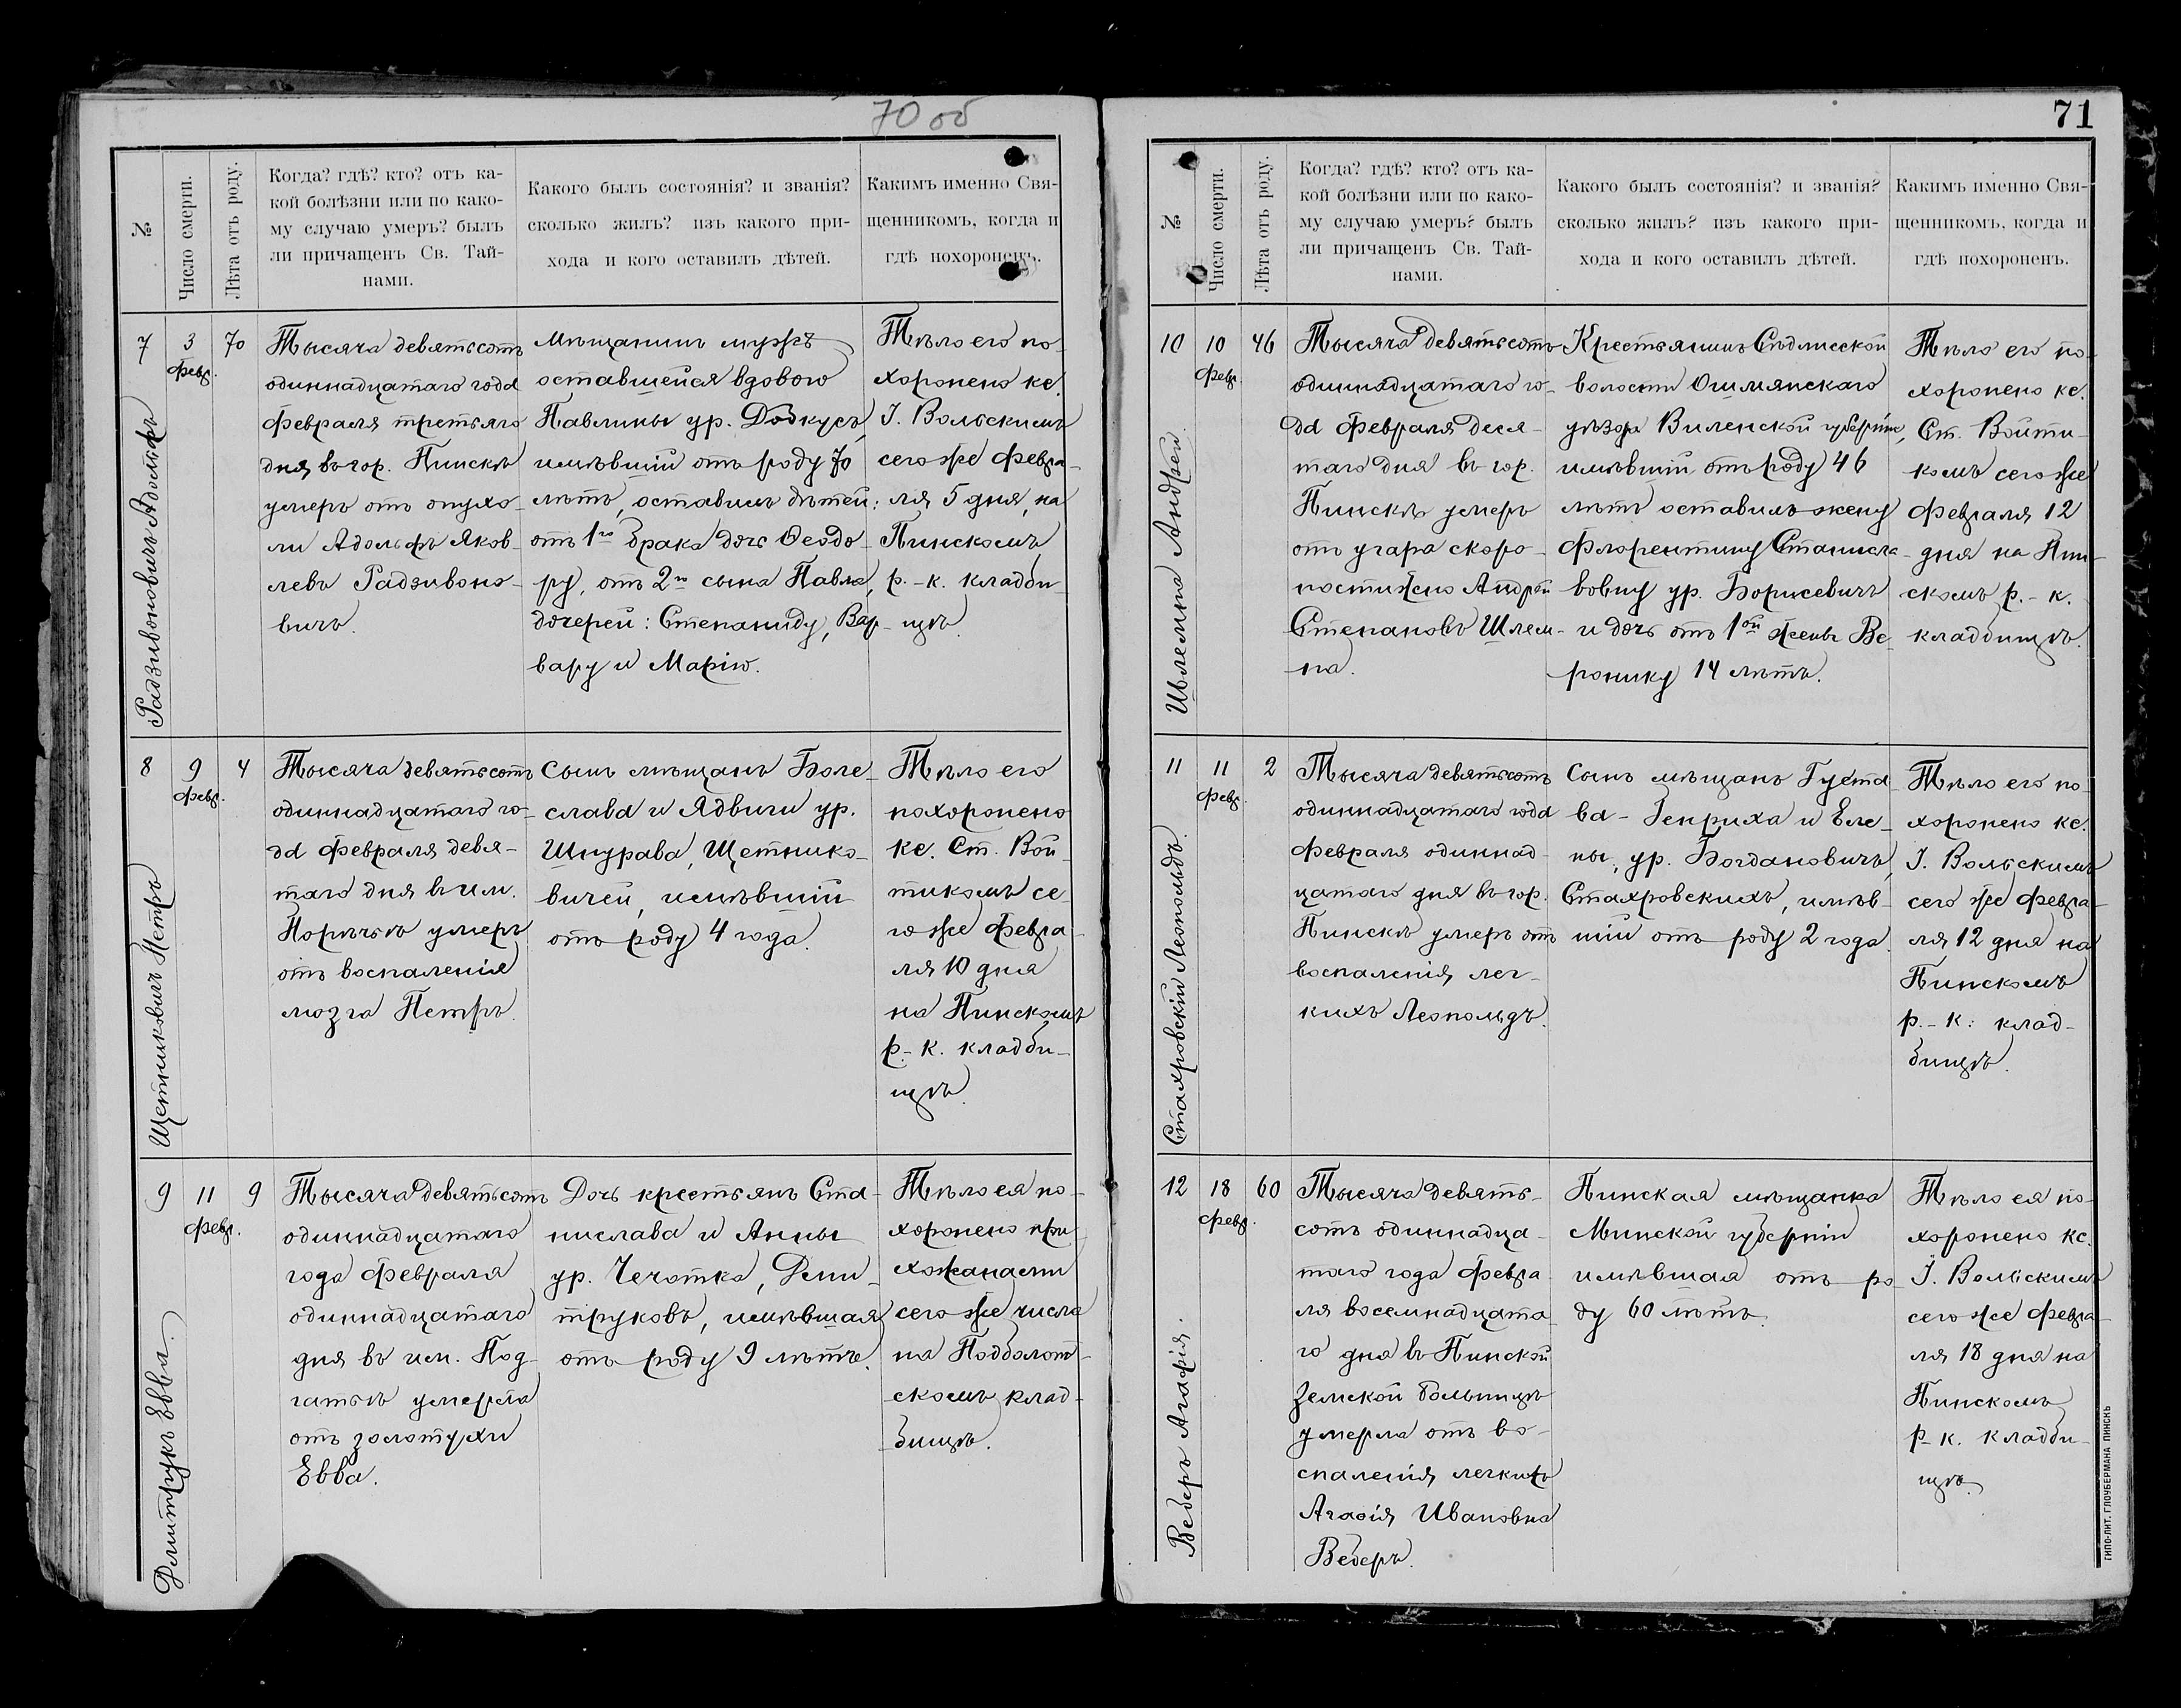 70 об
№
Число смерти.
Лѣта отъ роду.
Когда? гдѣ? кто? отъ ка-
кой болѣзни или по како-
му случаю умеръ? былъ
ли причащенъ Св. Тай-
нами.
Какого былъ состоянія? и званія?
сколько жилъ? изъ какого при-
хода и кого оставилъ дѣтей.
Какимъ именно Свя-
щенникомъ, когда и
гдѣ похороненъ.
7
Радзивоновичъ Адольфъ
3
февр.
70
Тысяча девятьсотъ
одиннадцатаго года
февраля третьяго
дня въ гор. Пинскѣ
умеръ отъ опухо-
ли Адольфъ Яков-
левъ Радзивоно-
вичъ.
Мѣщанинъ мужъ
оставшейся вдовою
Павлины ур. Додкусъ,
имѣвшій отъ роду 70
лѣтъ, оставилъ дѣтей:
отъ 1го брака дочь Ѳеодо-
ру, отъ 2го сына Павла,
дочерей: Степаниду, Вар-
вару и Марію.
Тѣло его по-
хоронено кс.
І. Вольскимъ
сего же февра-
ля 5 дня, на
Пинскомъ
р.-к. кладби-
щѣ.
8
Щетниковичъ Петръ
9
февр.
4
Тысяча девятьсотъ
одиннадцатаго го-
да февраля девя-
таго дня в им.
Порѣчьѣ умеръ
отъ воспаленія
мозга Петръ.
Сынъ мѣщанъ Боле-
слава и Ядвиги ур.
Шнурава, Щетнико-
вичей, имѣвшій
отъ роду 4 года.
Тѣло его
похоронено
кс. Ст. Вой-
тикомъ се-
го же февра-
ля 10 дня
на Пинскомъ
р.-к. кладби-
щѣ.
9
Дмитрукъ Евва.
11
февр.
9
Тысяча девятьсотъ
одиннадцатаго
года февраля
одиннадцатаго
дня въ им. Под-
гатьѣ умерла
отъ золотухи
Евва.
Дочь крестьянъ Ста-
нислава и Анны
ур. Чечотка, Дми-
труковъ, имѣвшая
отъ роду 9 лѣтъ.
Тѣло ея по-
хоронено при-
хожанами
сего же числа
на Подболот-
скомъ клад-
бищѣ.
71
№
Число смерти.
Лѣта отъ роду.
Когда? гдѣ? кто? отъ ка-
кой болѣзни или по како-
му случаю умеръ? былъ
ли причащенъ Св. Тай-
нами.
Какого былъ состоянія? и званія?
сколько жилъ? изъ какого при-
хода и кого оставилъ дѣтей.
Какимъ именно Свя-
щенникомъ, когда и
гдѣ похороненъ.
10
Шлемпа Андрей
10
февр.
46
Тысяча девятьсотъ
одиннадцатаго го-
да февраля деся-
таго дня въ гор.
Пинскѣ умеръ
отъ угара скоро-
постижно Андрей
Степановъ Шлем-
па.
Крестьянинъ Сѣдлисской
волости Ошмянскаго
уѣзда Виленской губерніи,
имѣвшій отъ роду 46
лѣтъ оставилъ жену
Флорентину Станисла-
вовну ур. Борисевичъ
и дочь отъ 1ой жены Ве-
ронику 14 лѣтъ.
Тѣло его по-
хоронено кс.
Ст. Войти-
комъ сего же
февраля 12
дня на Пин-
скомъ р.-к.
кладбищѣ.
11
Стахровскій Леопольдъ.
11
февр.
2
Тысяча девятьсотъ
одиннадцатаго года
февраля одиннад-
цатаго дня въ гор.
Пинскѣ умеръ отъ
воспаленія лег-
кихъ Леопольдъ.
Сынъ мѣщанъ Густа-
ва-Генриха и Еле-
ны, ур. Богдановичъ,
Стахровскихъ, имѣв-
шій отъ роду 2 года.
Тѣло его по-
хоронено кс.
І. Вольскимъ
сего же февра-
ля 12 дня на
Пинскомъ
р.-к. клад-
бищѣ.
12
Веберъ Агафія.
18
февр.
60
Тысяча девять-
сотъ одиннадца-
таго года февра-
ля восемнадцата-
го дня въ Пинской
земской больницѣ
умерла отъ во-
спаленія легкихъ
Агаѳія Ивановна
Веберъ.
Пинская мѣщанка
Минской губерніи
имѣвшая отъ ро-
ду 60 лѣтъ.
Тѣло ея по-
хоронено кс.
І. Вольскимъ
сего же февра-
ля 18 дня на
Пинскомъ
р-к. кладби-
щѣ.
ТИПО-ЛИТ. ГЛОУБЕРМАНА ПИНСКЪ